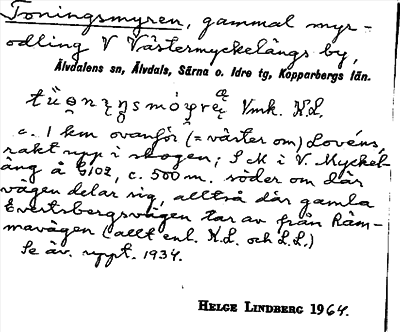 Toningsmyren, gammal myr-
odling V Västermyckelängs by,
Älvdalens sn, Älvdals, Särna o. Idre tg, Kopparbergs län.
Vmk. K.L.
c. 1 km ovanför (= väster om) Lovéns,
rakt upp i skogen; S M i V. Myckel-
äng å 6102, c. 500 m. söder om där
vägen delar sig, alltså där gamla
Evertsbergsvägen tar av från Räm-
mavägen (allt enl. K.L. och L.L.)
Se äv. uppt. 1934.
HELGE LINDBERG 1964.